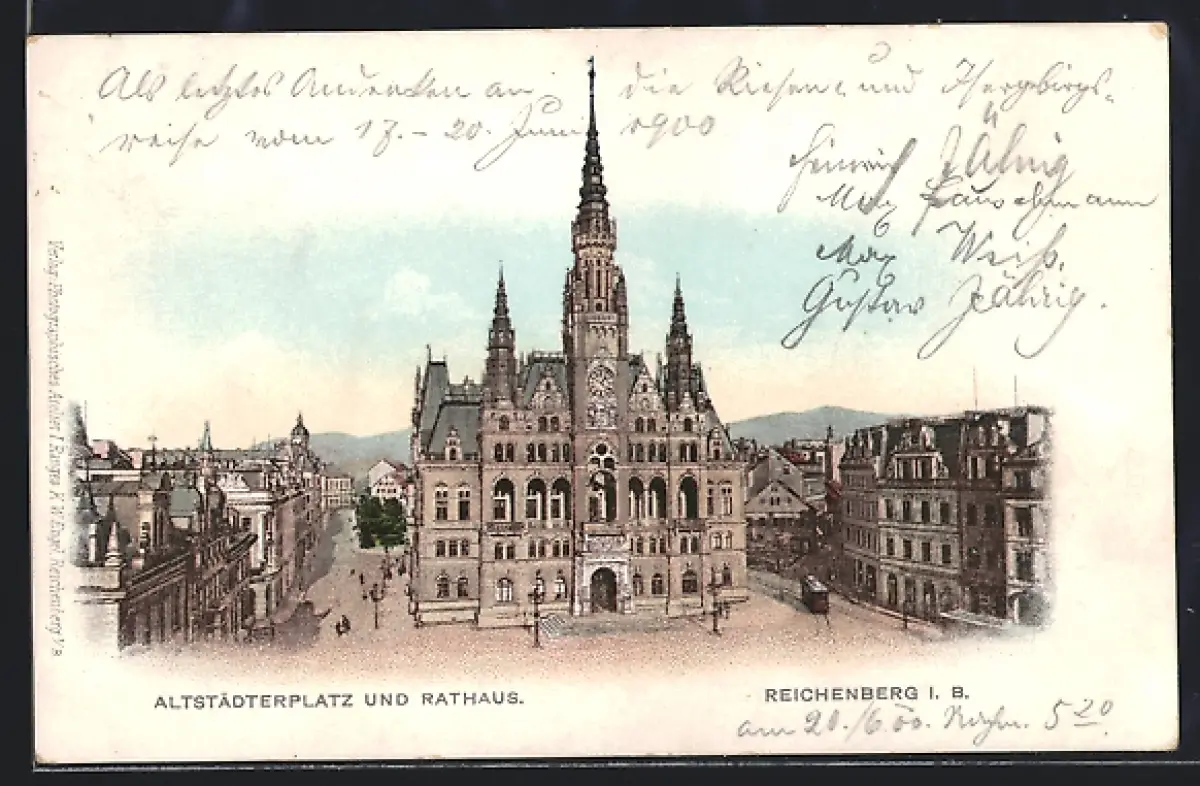 Als letztes Andenken an die Riesen- und Isergebirgs-
reise vom 17. - 20. Juni 1900
Heinrich Jähnig
Max
Max Weiß.
Gustav Jährig.
Verlag Photographisches Atelier Reichenberg i/B
ALTSTÄDTERPLATZ UND RATHAUS.
REICHENBERG I. B.
am 20./6.00. Nachm. 5 20